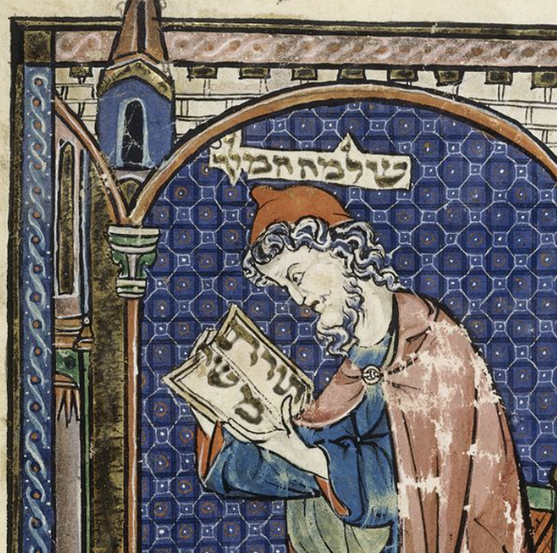 שלמה המלך
תורת
מש